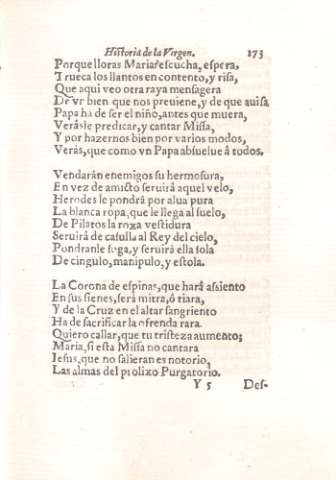 Historia de la Virgen. 173
Porque lloras Maria? escucha, espera,
Trueca los llantos en contento, y risa,
Que aqui veo otra raya mensagera
De vr bien que nos preuiene, y de que auisa
Papa ha de ser el niño, antes que muera,
Verasle predicar, y cantar Missa,
Y por hazernos bien por varios modos,
Verás, que como vn Papa absuelue â todos.
Vendarán enemigos su hermosura,
En vez de amicto seruirá aquel velo,
Herodes le pondrá por alua pura
La blanca ropa, que le llega al suelo,
De Pilatos la roxa vestidura
Seruirá de casulla al Rey del cielo,
Pondranle soga, y seruirá ella sola
De cingulo, manipulo, y estola.
La Corona de espinas, que hará assiento
En sus sienes, será mitra, ó tiara,
Y de la Cruz en el altar sangriento
Ha de sacrificar la ofrenda rara.
Quiero callar, que tu tristeza aumento;
Maria, si esta Missa no cantara
Iesus, que no salieran es notorio,
Las almas del prolixo Purgatorio.
Y 5 Des-